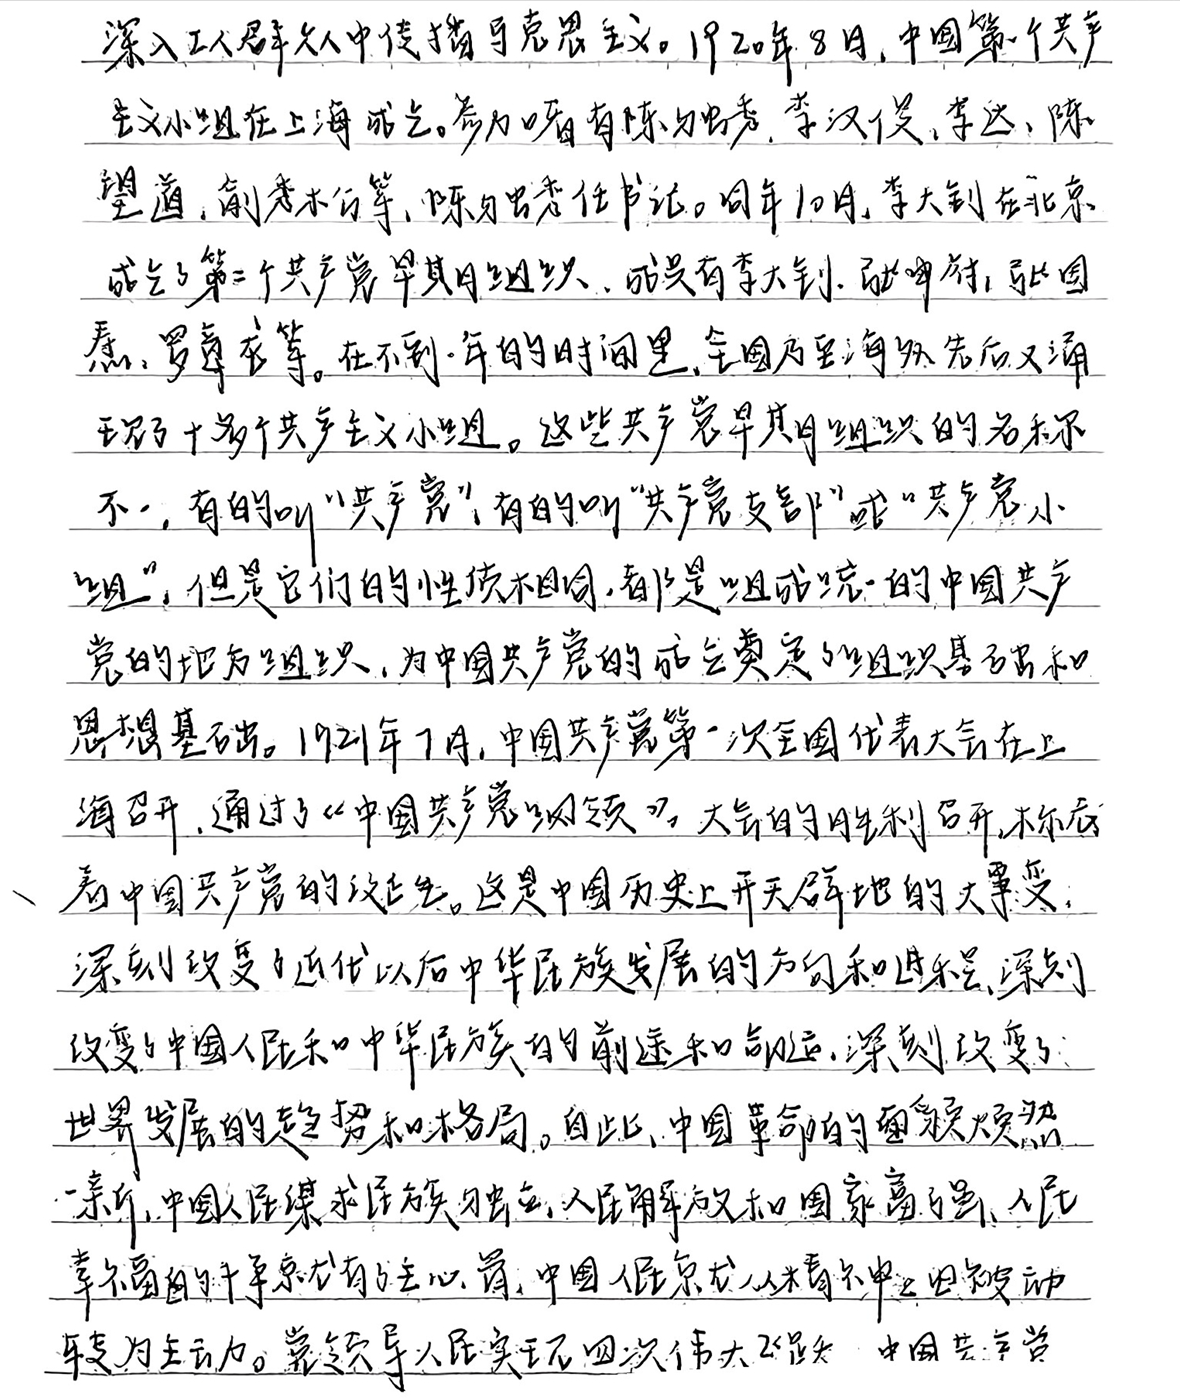 深入工人群众中传播马克思主义。1920年8月,中国第一个共产
主义小组在上海成立。参加者有陈独秀、李汉俊、李达、陈
望道、俞秀松等,陈独秀任书记。同年10月,李大钊在北京
成立了第二个共产党早期组织,成员有李大钊、张申府、张国
焘、罗章龙等。在不到一年的时间里,全国乃至海外先后又涌
现了十多个共产主义小组。这些共产党早期组织的名称
不一,有的叫“共产党”,有的叫“共产党支部”或“共产党小
组”,但是它们的性质相同,都是组成统一的中国共产
党的地方组织,为中国共产党的成立奠定了组织基础和
思想基础。1921年7月,中国共产党第一次全国代表大会在上
海召开,通过了《中国共产党纲领》。大会的胜利召开,标志
着中国共产党的诞生。这是中国历史上开天辟地的大事变,
深刻改变了近代以后中华民族发展的方向和进程,深刻
改变了中国人民和中华民族的前途和命运,深刻改变了
世界发展的趋势和格局。自此,中国革命的面貌焕然
一新,中国人民谋求民族独立、人民解放和国家富强、人民
幸福的斗争就有了主心骨,中国人民就从精神上由被动
转为主动。党领导人民实现四次伟大飞跃 中国共产党